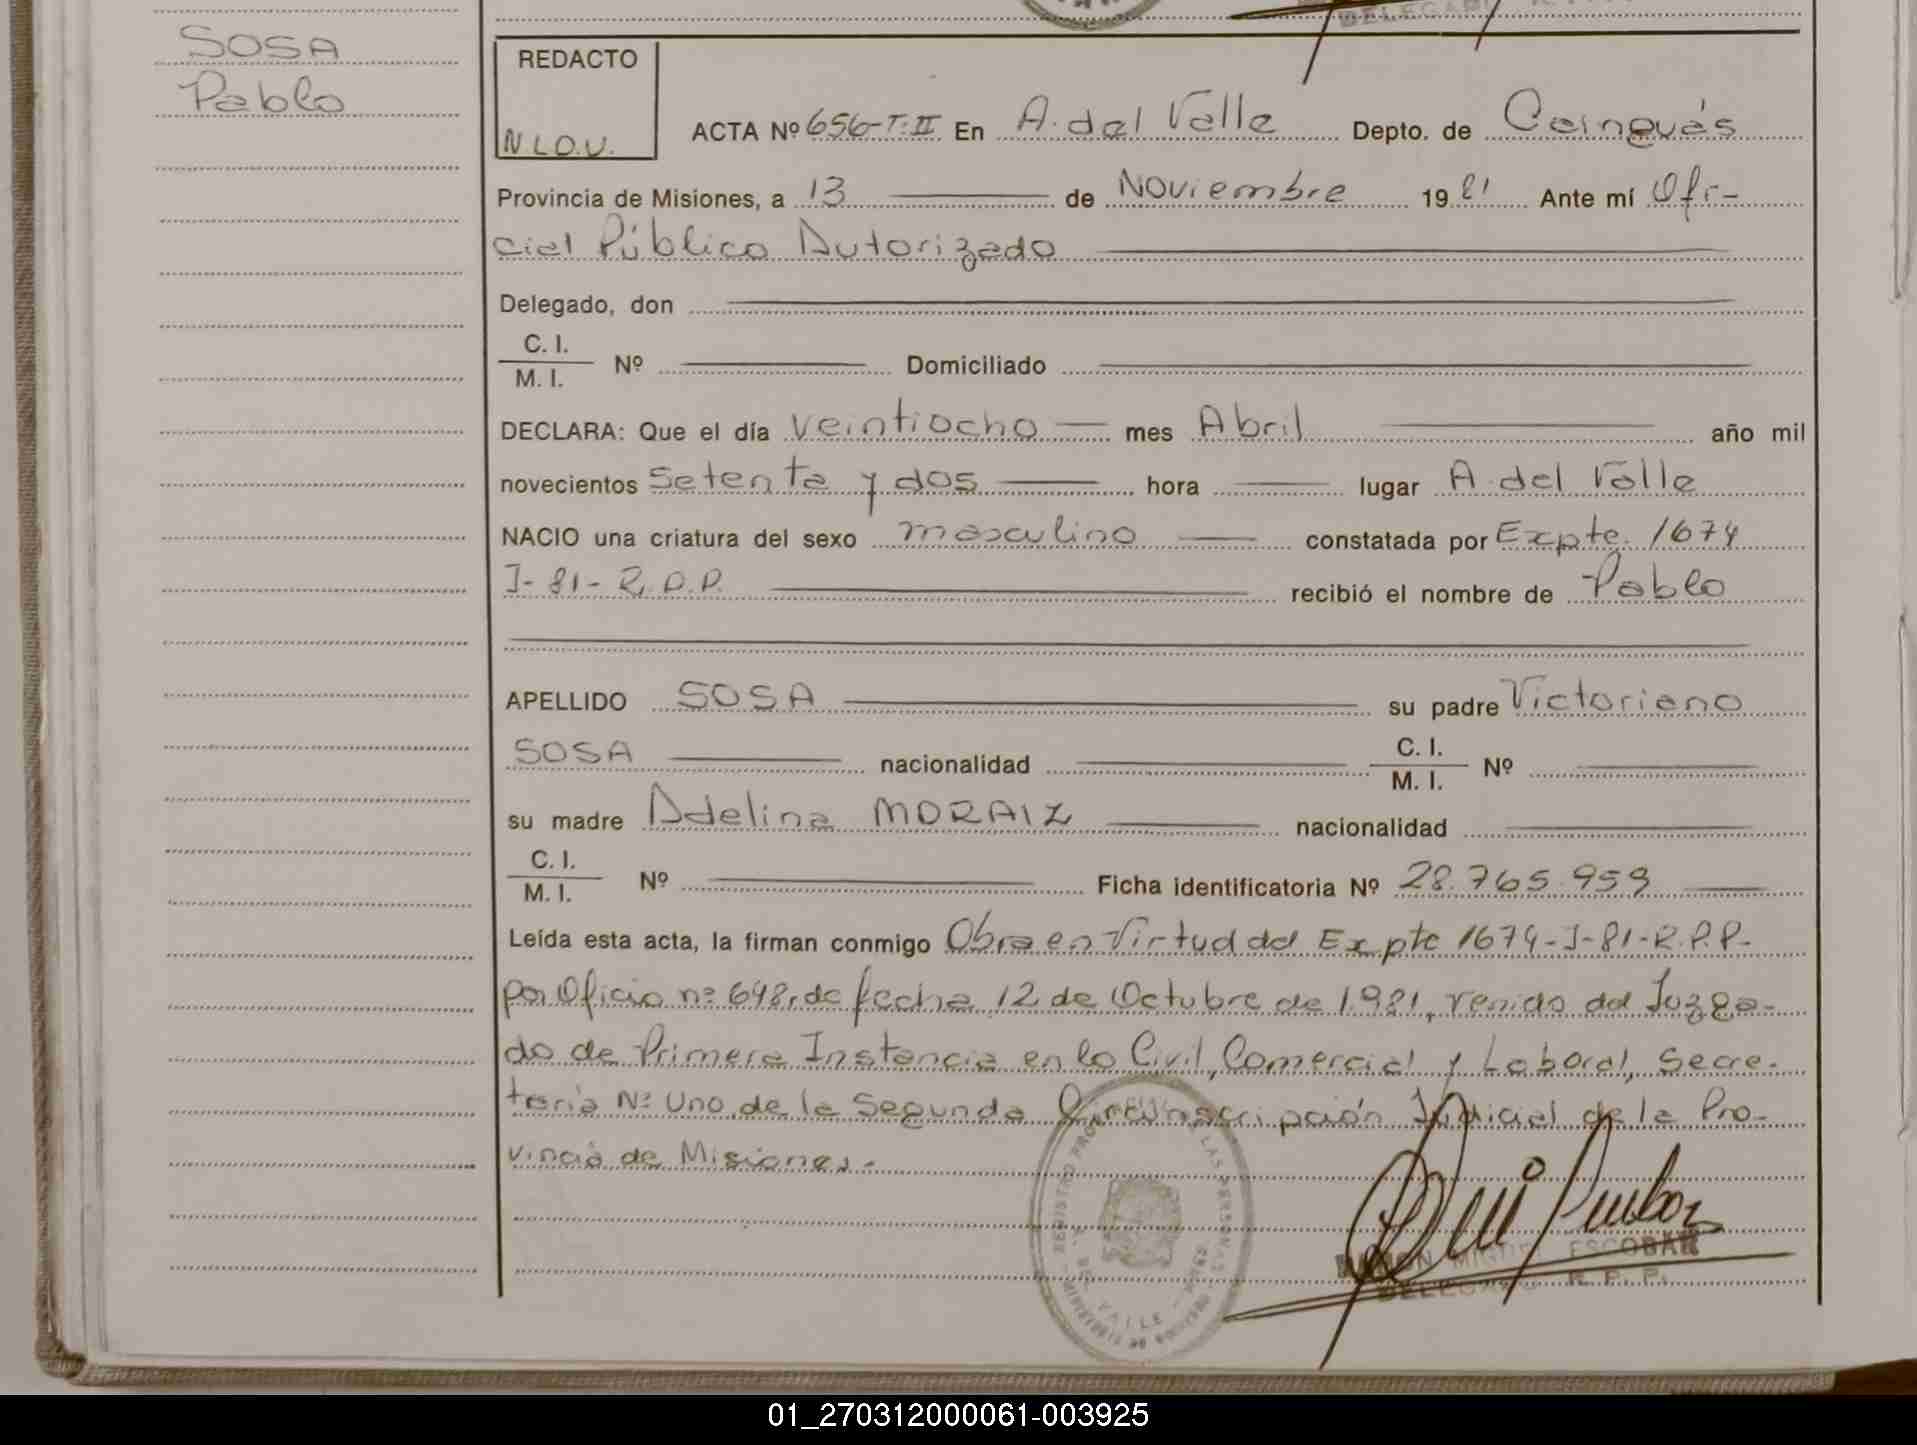 SOSA
Pablo
REDACTO
N L O. V.
ACTA Nº 656-T: II En A. del Valle Depto. de Cainguás
Provincia de Misiones, a 13 de Noviembre 19 81 Ante mí Ofi-
cial Público Autorizado
Delegado, don
C. I.
M. I. Nº Domiciliado
DECLARA: Que el día veintiocho mes Abril año mil
novecientos setenta y dos hora lugar A. del Valle
NACIO una criatura del sexo masculino constatada por Expte. 1674
J-81-R.P.P. recibió el nombre de Pablo
APELLIDO SOSA su padre Victoriano
SOSA nacionalidad C. I.
M. I. Nº
su madre Adelina MORAIZ nacionalidad
C. I.
M. I. Nº Ficha identificatoria Nº 28.765.959
Leída esta acta, la firman conmigo Obra en Virtud del Expte 1674-J-81-R.P.P.
por Oficio nº 648, de fecha 12 de Octubre de 1.981, venido del Juzga-
do de Primera Instancia en lo Civil, Comercial y Laboral, Secre-
taría Nº Uno de la Segunda Circunscripción Judicial de la Pro-
vincia de Misiones.-
ESCOBAR
DELEGADO R. P. P.
01_270312000061-003925